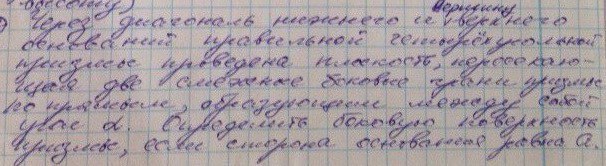 высоту)
Через диагональ нижнего и вершину верхнего
оснований правильной четырёхугольной
призмы проведена плоскость, пересекаю-
щая две смежные боковые грани призмы
по прямым, образующим между собой
угол α. Определить боковую поверхность
призмы, если сторона основания равна a.